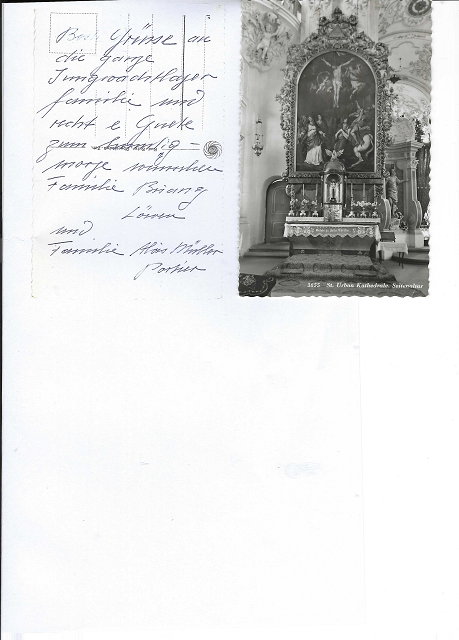 Grüsse an
die ganze
Jungwachtlager
familie und
recht e Guete
zum
morge wünschen
Familie
Löwen
und
Familie Alois Müller
Portier
3675 St. Urban Kathedrale. Seitenaltar